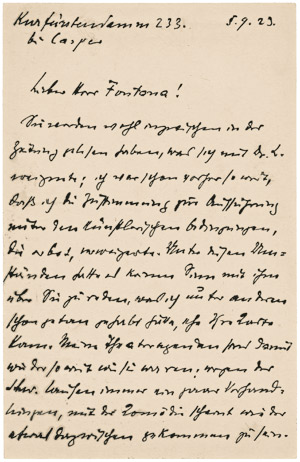 Kurfürstendamm 233. 5.9.23.
bei Casper
Lieber Herr Fontana!
Sie werden wohl inzwischen in der
Zeitung gelesen haben, was ich mit Dr. L.
ich war schon vorher so weit,
daß ich die Zustimmung zur Aufführung
unter den künstlerischen Bedingungen,
die er bot, verweigerte. Unter diesen Um-
ständen hatte es kaum Sinn mit ihm
über Sie zu reden, was ich unter anderen
schon getan gehabt hätte, ehe Ihre Karte
kam. Meine Theateragenden sind damit
wieder so weit wie sie waren, wegen der
Schw. laufen immer ein paar Verhand-
lungen, mit der Komödie scheint wieder
etwas dazwischen gekommen zu sein.